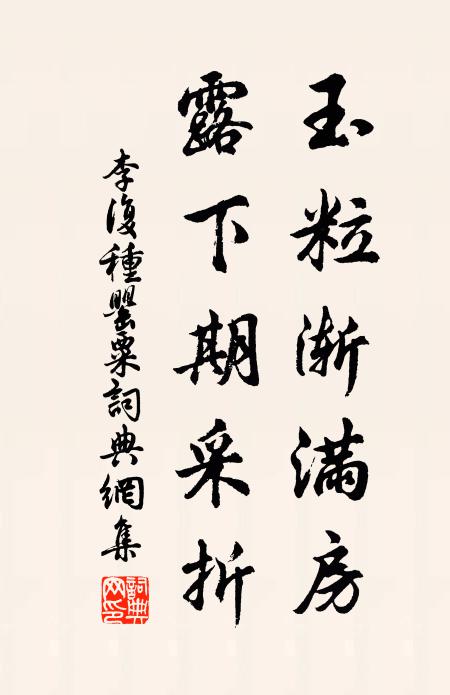 玉粒渐满房
露下期采折
李復種罌粟詞典網集
詞典网印